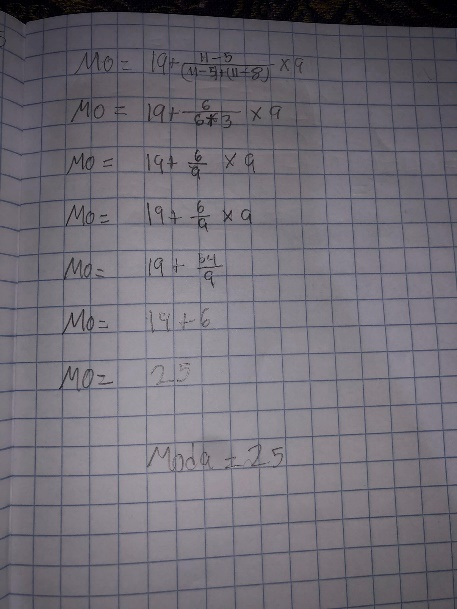 Mo = 19 + 11-5/(11-5)+(11-8) × 9
Mo = 19 + 6/6+3 × 9
Mo = 19 + 6/9 × 9
Mo = 19 + 6/9 × 9
Mo = 19 + 54/9
Mo = 19 + 6
Mo = 25
Moda = 25